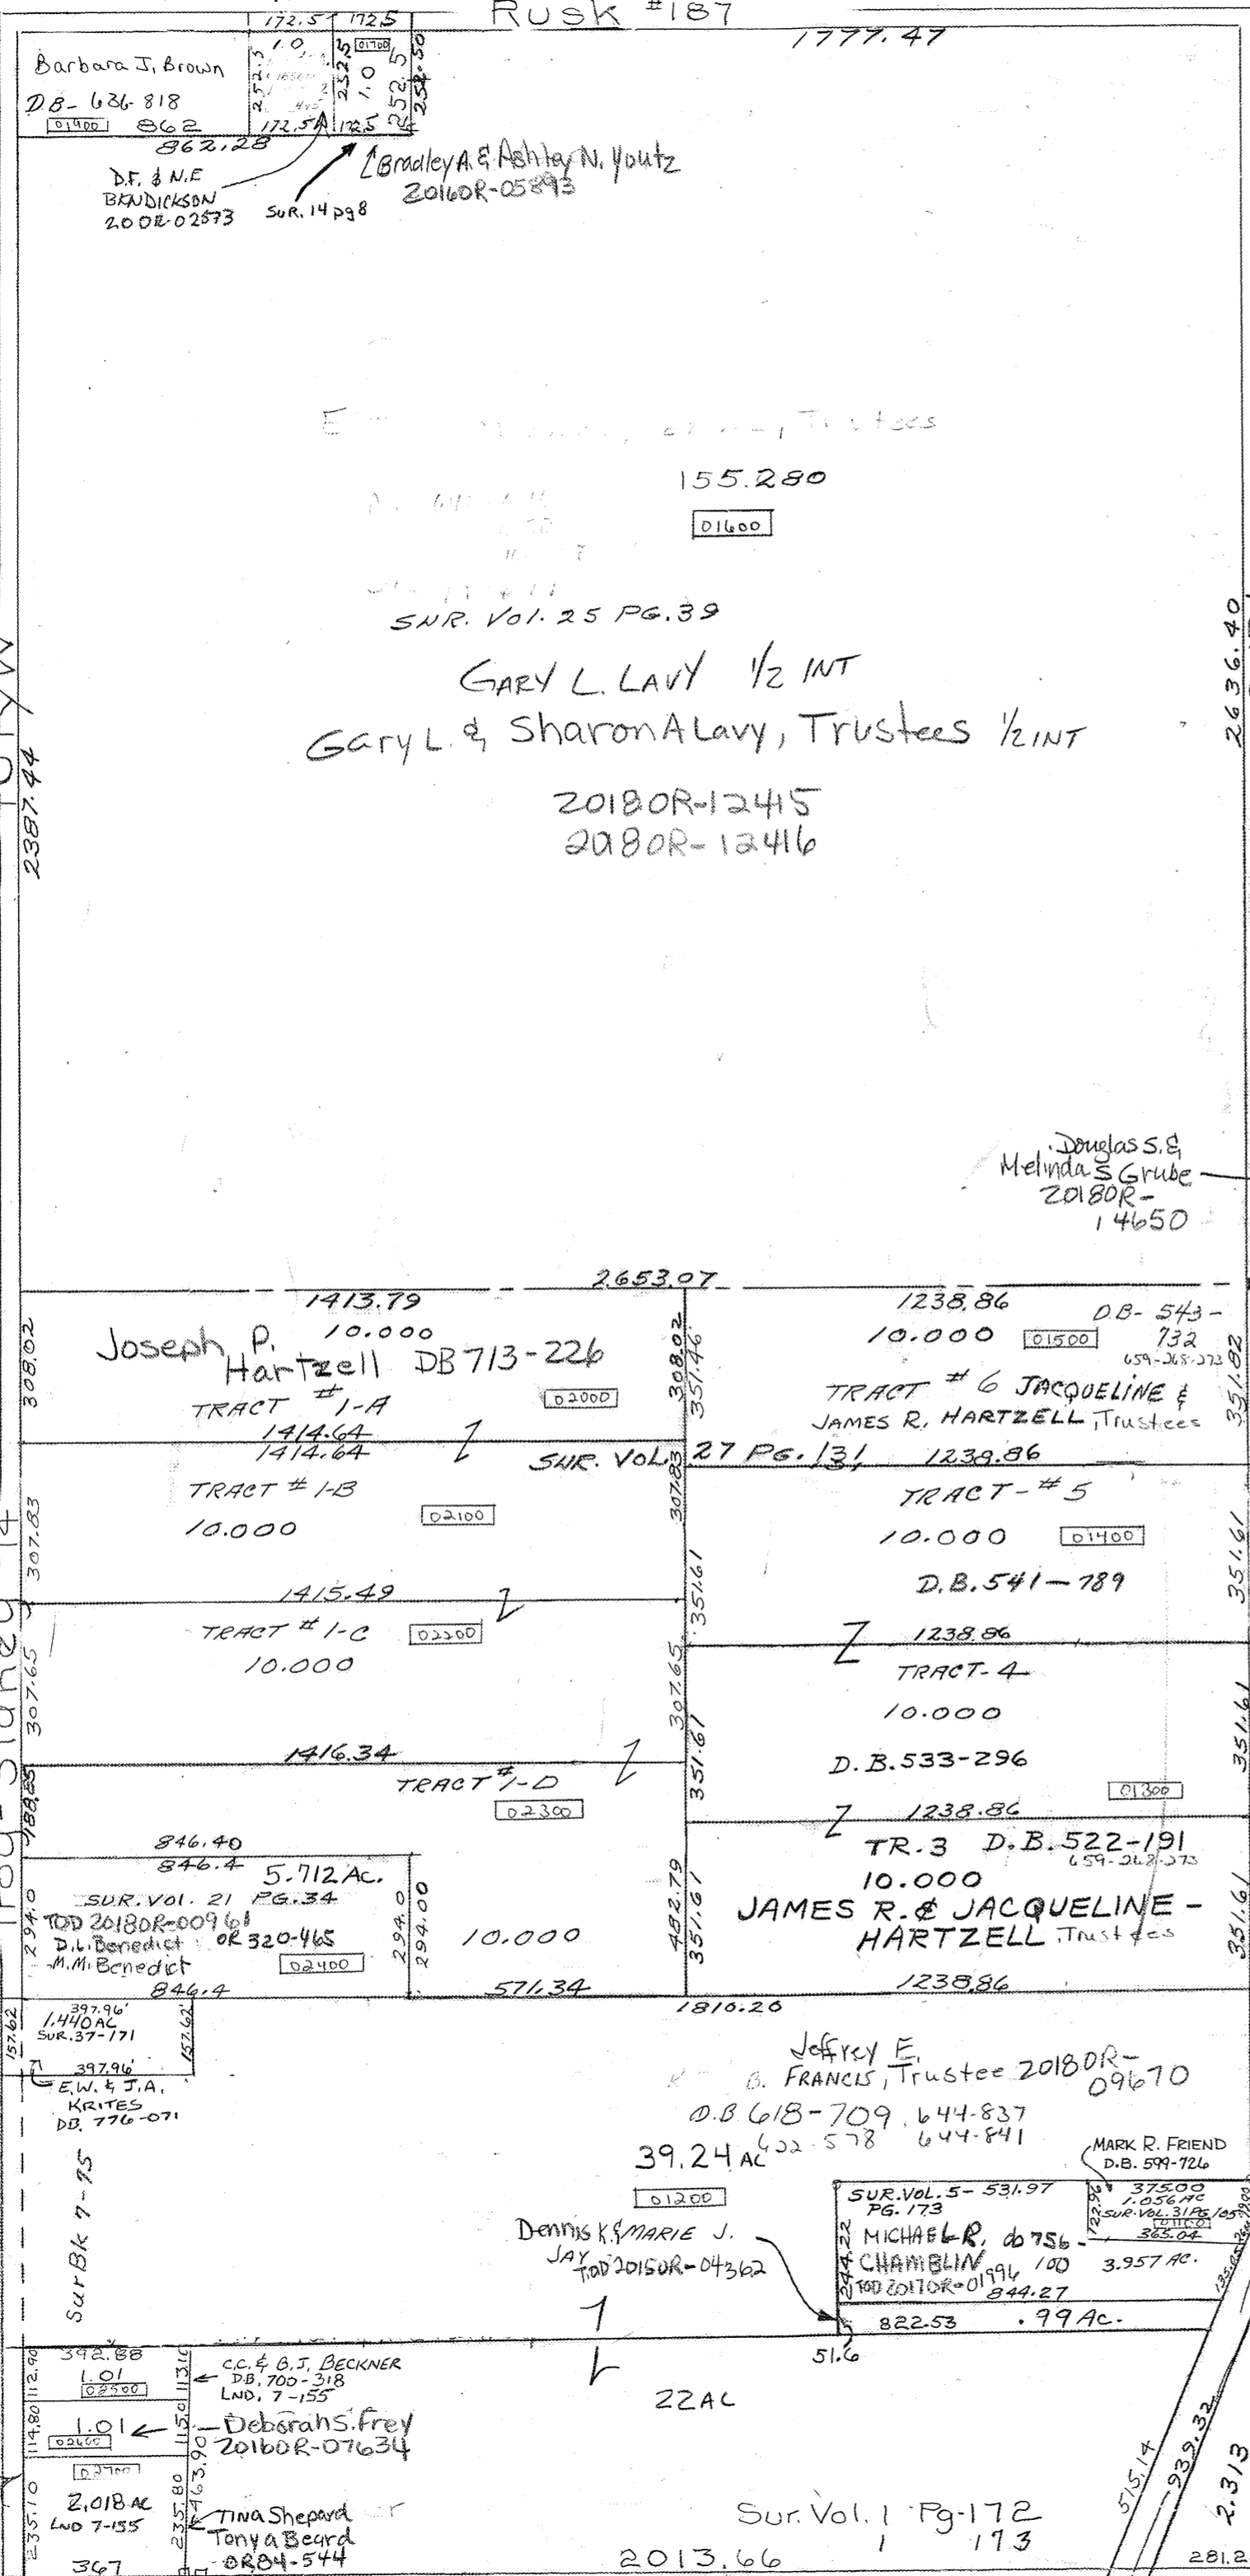 Rusk #187
172.5 172.5
1777.47
Barbara J. Brown
D.B- 636-818
01900 862
862.28
252.5
1.0
172.5
252.5
01700
1.0
252.5
252.50
172.5
D.F. & N.E
BENDICKSON
200R-02573
SUR. 14 pg 8
Bradley A. & Ashley N. Youtz
2016OR-05893
155.280
01600
SUR. Vol. 25 PG. 39
GARY L. LAVY 1/2 INT
Gary L. & Sharon A Lavy, Trustees 1/2 INT
2018OR-12415
2018OR-12416
2387.44
2636.40
Douglas S. &
Melinda S Grube
2018OR-
14650
2653.07
1413.79
10.000
Joseph P.
Hartzell DB 713-226
TRACT #1-A
02000
308.02
308.02
1414.64
1414.64
SUR. VOL. 27 PG. 131
TRACT #1-B
10.000
02100
307.83
307.83
1415.49
TRACT #1-C
02200
10.000
307.65
307.65
1416.34
TRACT #1-D
02300
188.85
846.40
846.4
5.712 AC.
SUR. Vol. 21 PG. 34
TOD 2018OR-00961
D.L. Benedict OR 320-465
M.M. Benedict
02400
294.0
294.0
294.00
846.4
10.000
482.79
571.34
1238.86
D.B- 543-
732
659-268-273
10.000
01500
TRACT #6 JACQUELINE &
JAMES R. HARTZELL, Trustees
351.46
351.82
1238.86
TRACT-#5
10.000
01400
D.B. 541-789
351.61
351.61
1238.86
TRACT-4
10.000
D.B. 533-296
01300
351.61
351.61
1238.86
TR. 3 D.B. 522-191
659-268-273
10.000
JAMES R. & JACQUELINE -
HARTZELL Trustees
351.61
351.61
1238.86
1810.20
397.96'
1.440 AC
SUR. 37-171
157.62
157.62'
397.96'
E.W. & J.A.
KRITES
DB. 776-071
Sur Bk 7-75
Jeffrey E.
B. FRANCIS, Trustee 2018OR-
09670
D.B. 618-709 644-837
622-578 644-841
39.24 AC
01200
MARK R. FRIEND
D.B. 599-726
375.00
1.056 AC
SUR. VOL. 31 PG 105
365.04
122.96
SUR. VOL. 5- 531.97
PG. 173
MICHAEL R. db 756-
CHAMBLIN 100
TOD 2017OR-01996
3.957 AC.
244.22
844.27
822.53 .99 AC.
51.6
Dennis K. & MARIE J.
JAY TOD 2015OR-04362
392.88
1.01
02500
112.90
113.10
C.C. & B.J. BECKNER
D.B. 700-318
LND. 7-155
1.01
02600
114.80
115.0
Deborah S. Frey
2016OR-07634
02700
2.018 AC
LND 7-155
235.10
235.80
463.90
Tina Shepard
Tonya Beard
OR 84-544
367
22 AC
Sur. Vol. 1 Pg-172
1 173
2013.66
515.14
939.32
2.313
281.2